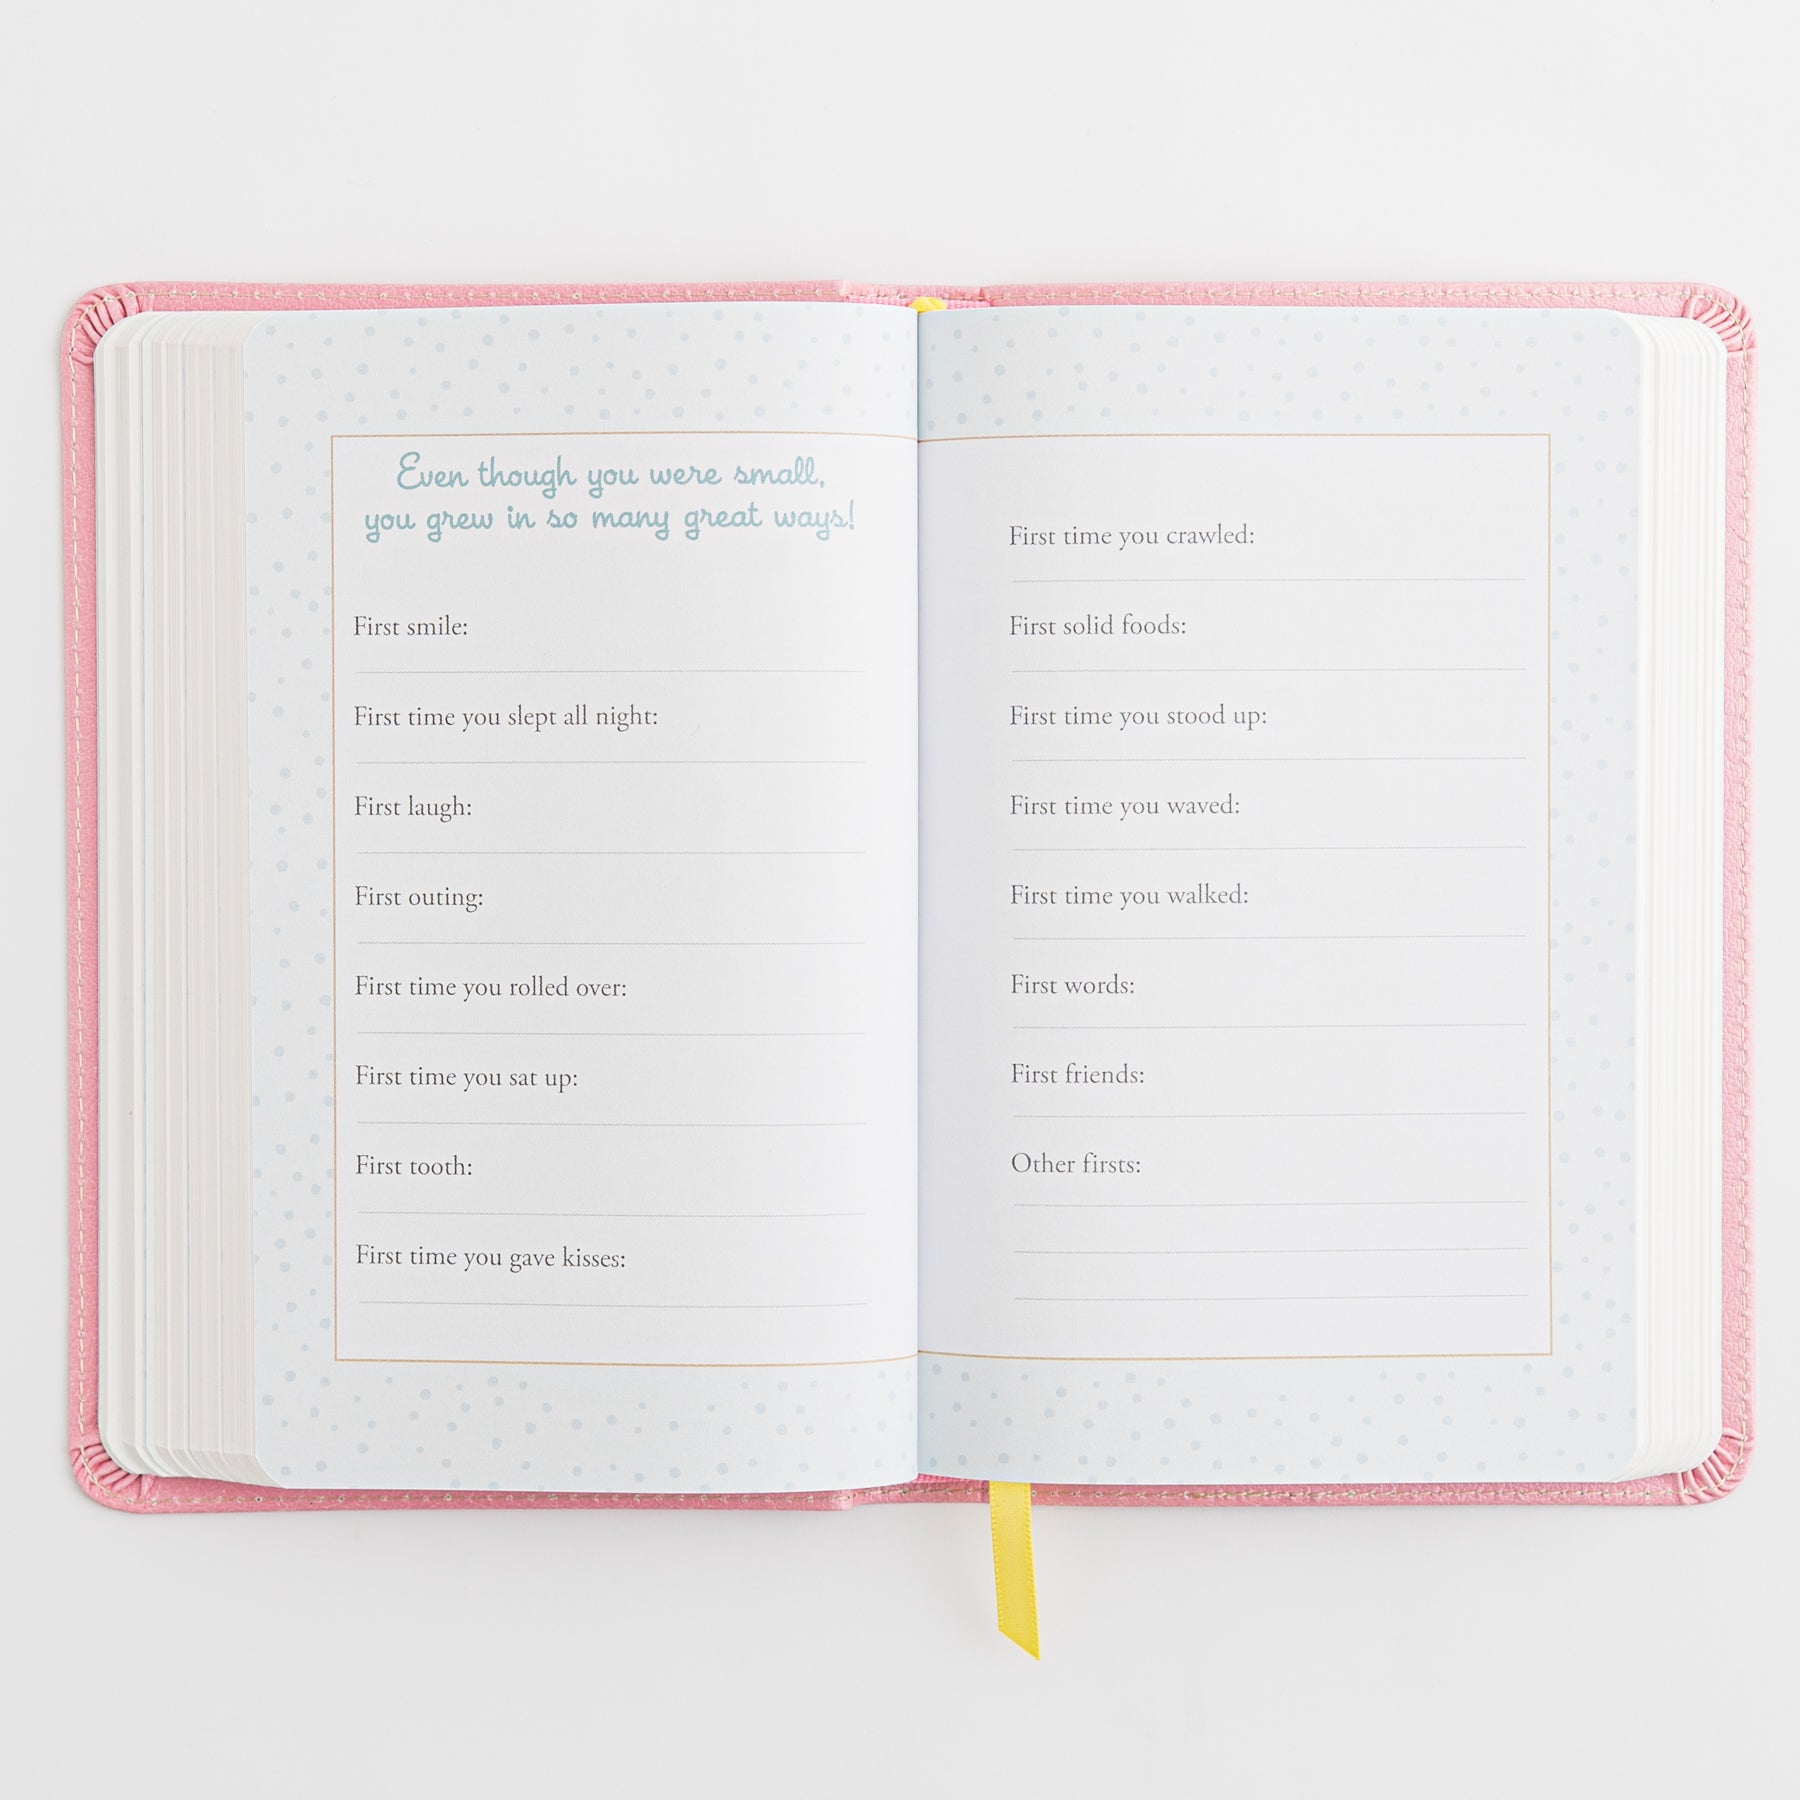 Even though you were small,
you grew in so many great ways!
First smile:
First time you slept all night:
First laugh:
First outing:
First time you rolled over:
First time you sat up:
First tooth:
First time you gave kisses:
First time you crawled:
First solid foods:
First time you stood up:
First time you waved:
First time you walked:
First words:
First friends:
Other firsts: